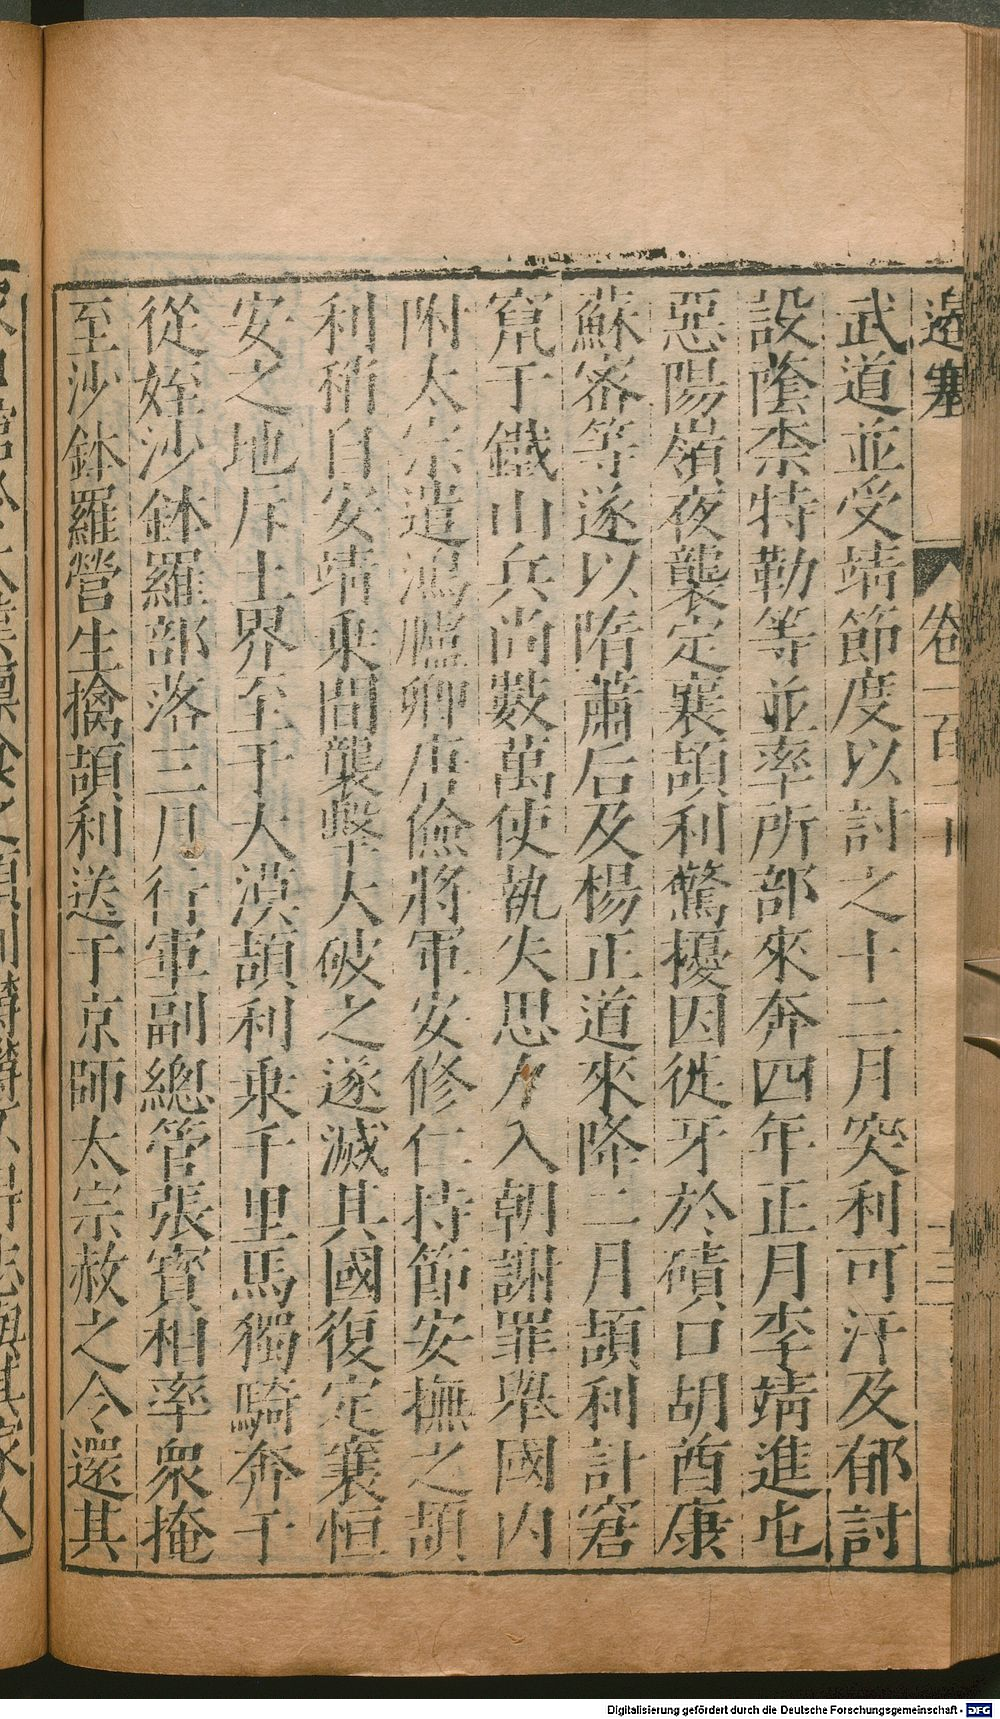 邊塞 卷一百二十 十三
武道並受靖節度以討之十二月突利可汗及郁討
設蔭柰特勒等並率所部來奔四年正月李靖進屯
惡陽嶺夜襲定襄頡利驚擾因徙牙於磧口胡酋康
蘇密等遂以隋蕭后及楊正道來降二月頡利計窘
竄于鐵山兵尚數萬使執失思力入朝謝罪舉國內
附太宗遣鴻臚卿唐儉將軍安修仁持節安撫之頡
利稍自安靖乗間襲擊大破之遂滅其國復定襄恒
安之地斥土界至于大漠頡利乗千里馬獨騎奔于
從姪沙鉢羅部落三月行軍副總管張寳相率衆掩
至沙鉢羅營生擒頡利送于京師太宗赦之令還其
Digitalisierung gefördert durch die Deutsche Forschungsgemeinschaft - DFG